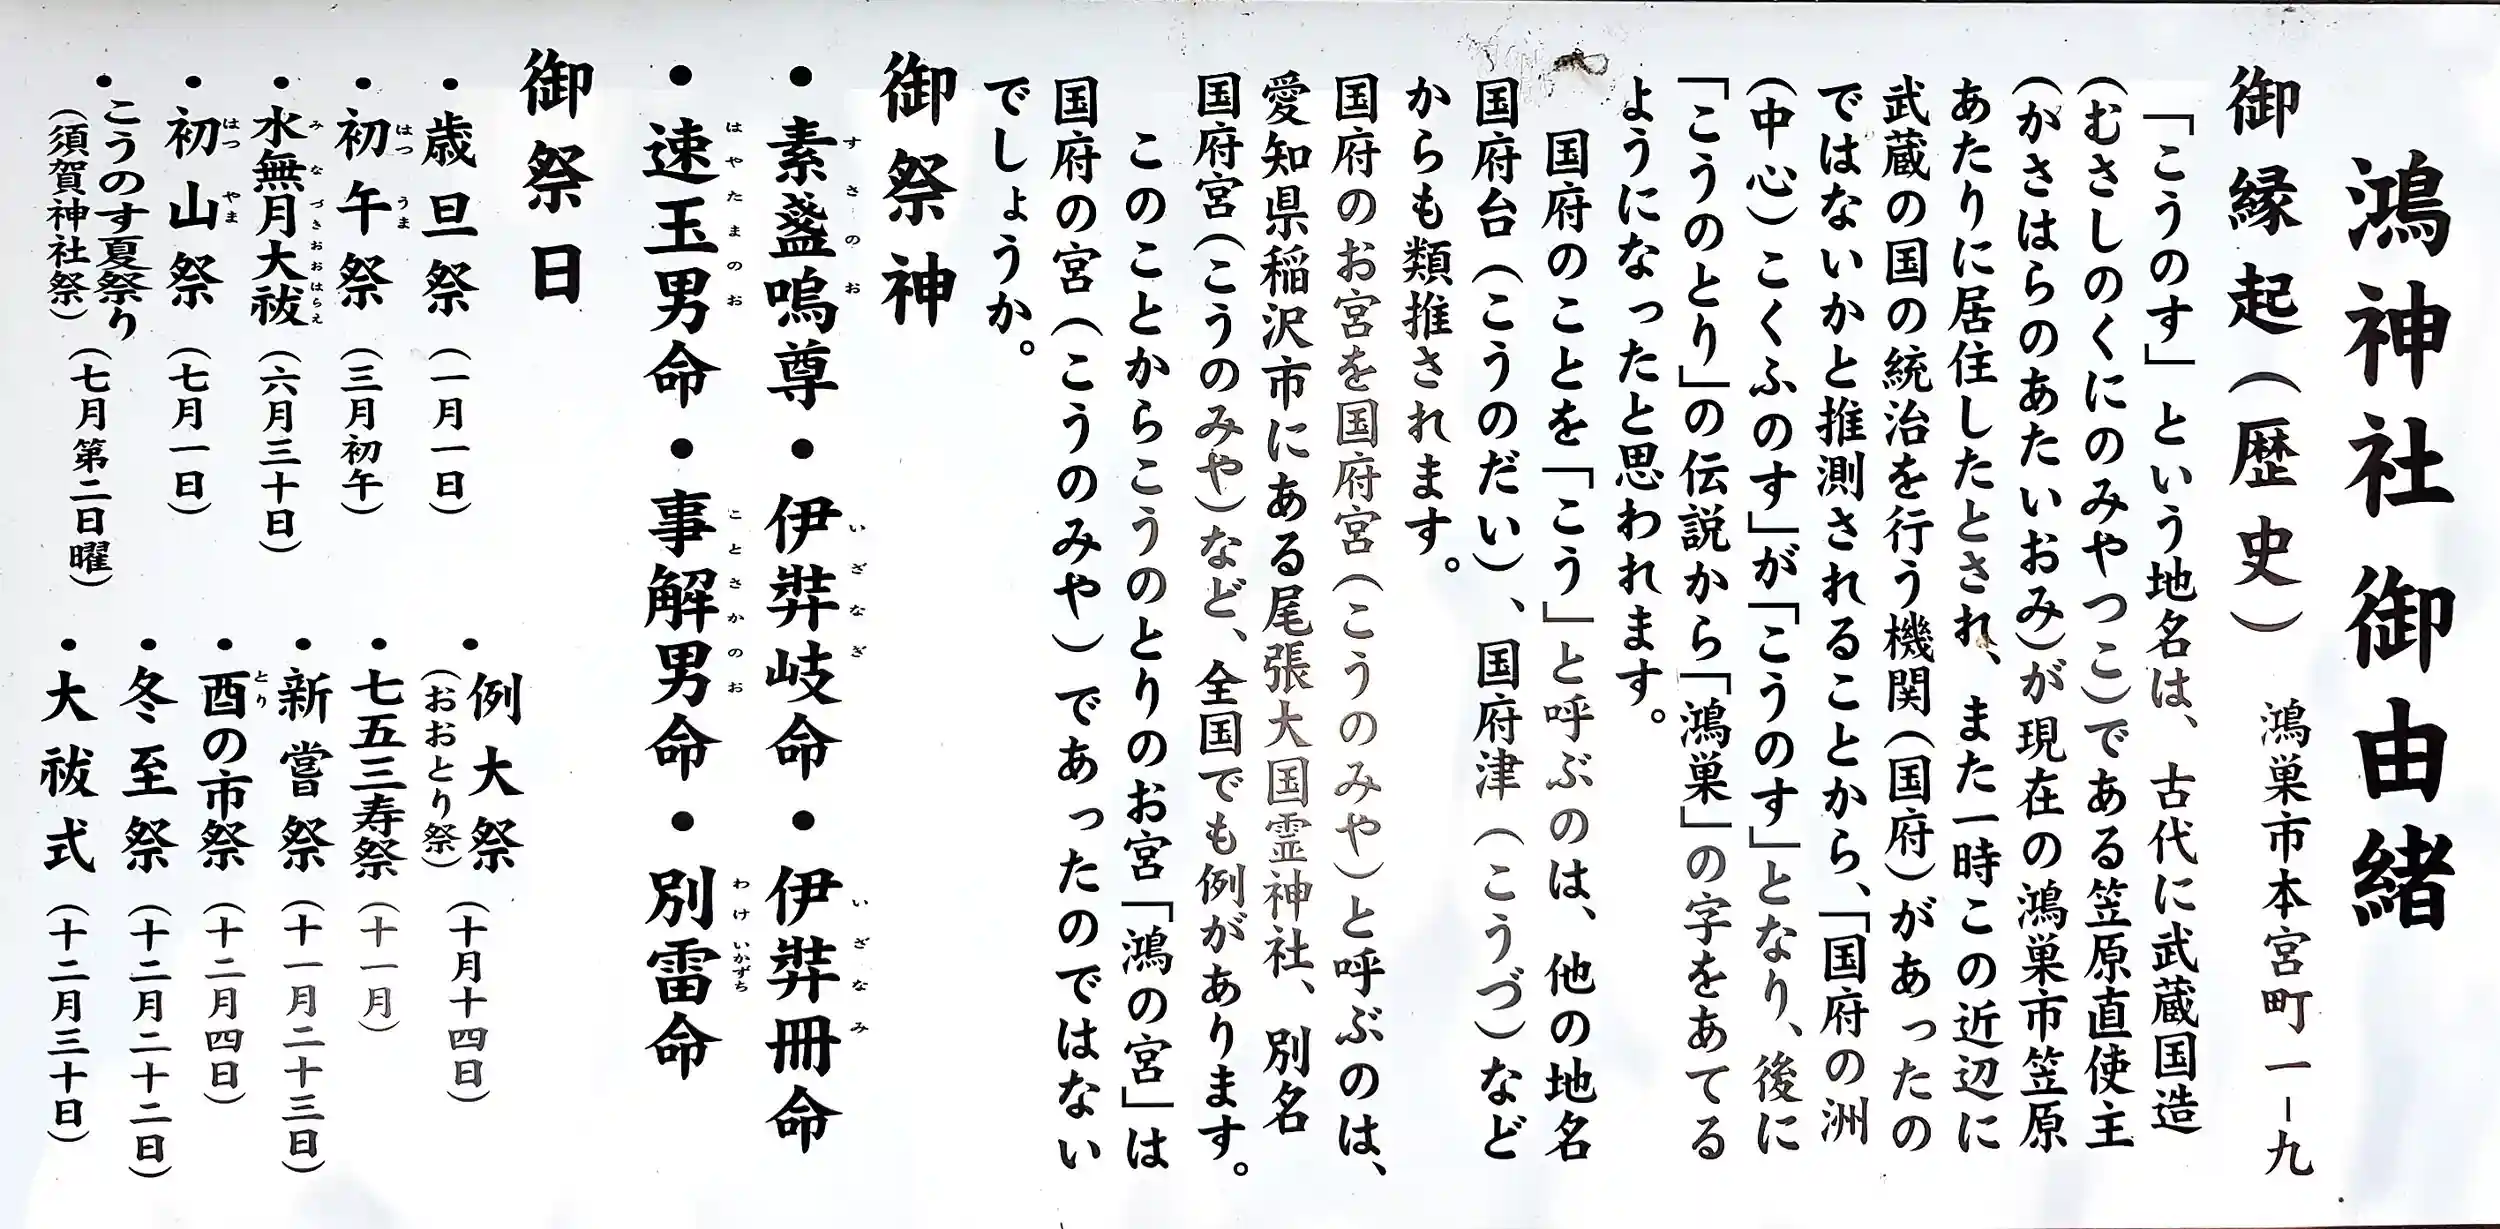 鴻神社 御由緒
御縁起(歴史) 鴻巣市本宮町一ー九
「こうのす」という地名は、古代に武蔵国造
(むさしのくにのみやつこ)である笠原直使主
(かさはらのあたいおみ)が現在の鴻巣市笠原
あたりに居住したとされ、また一時この近辺に
武蔵の国の統治を行う機関(国府)があったの
ではないかと推測されることから、「国府の洲
(中心)こくふのす」が「こうのす」となり、後に
「こうのとり」の伝説から「鴻巣」の字をあてる
ようになったと思われます。
国府のことを「こう」と呼ぶのは、他の地名
国府台(こうのだい)、国府津(こうづ)など
からも類推されます。
国府のお宮を国府宮(こうのみや)と呼ぶのは、
愛知県稲沢市にある尾張大国霊神社、別名
国府宮(こうのみや)など、全国でも例があります。
このことからこうのとりのお宮「鴻の宮」は
国府の宮(こうのみや)であったのではない
でしょうか。
御祭神
・素盞嗚尊 ・伊弉岐命 ・伊弉冊命
すさのお いざなぎ いざなみ
・速玉男命 ・事解男命 ・別雷命
はやたまのお ことさかのお わけいかずち
御祭日
・歳旦祭(一月一日)
・初午祭(三月初午)
はつうま
・水無月大祓(六月三十日)
みなづきおおはらえ
・初山祭(七月一日)
はつやま
・こうのす夏祭り(七月第二日曜)
(須賀神社祭)
・例大祭(十月十四日)
(おおとり祭)
・七五三寿祭(十一月)
・新嘗祭(十一月二十三日)
・酉の市祭(十二月四日)
とり
・冬至祭(十二月二十二日)
・大祓式(十二月三十日)